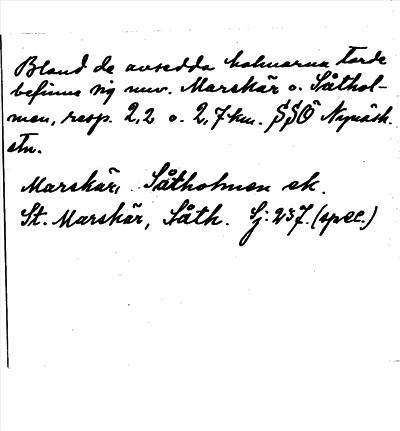 Bland de avsedda holmarna torde
befinna sig nuv. Marskär o. Såthol-
men, resp. 2,2 o. 2,7 km. SSÖ Nynäsh.
stn.
Marskär, Såtholmen ek.
St. Marskär, Såth. Sj: 237. (spec.)